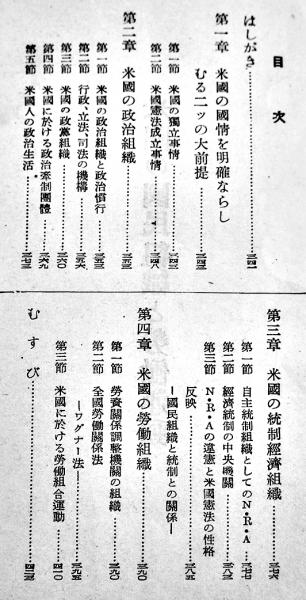 目次
はしがき…………三四一
第一章 米國の國情を明確ならし
むる二ッの大前提…………三四三
第一節 米國の獨立事情…………三四三
第二節 米國憲法成立事情…………三四八
第二章 米國の政治組織…………三五三
第一節 米國の政治組織と政治慣行…………三五三
第二節 行政、立法、司法の機構…………三五六
第三節 米國の政黨組織…………三六〇
第四節 米國に於ける政治牽制團體…………三六九
第五節 米國人の政治生活…………三七三
第三章 米國の統制經濟組織…………三七六
第一節 自主統制組織としてのN・R・A…………三七七
第二節 經濟統制の中央機關…………三八二
第三節 N・R・Aの違憲と米國憲法の性格
反映…………三八五
―國民組織と統制との關係―
第四章 米國の勞働組織…………三九〇
第一節 勞資關係調整機關の組織…………三九〇
第二節 全國勞働關係法
―ワグナー法―…………三九五
第三節 米國に於ける勞働組合運動…………四一〇
むすび…………四二三